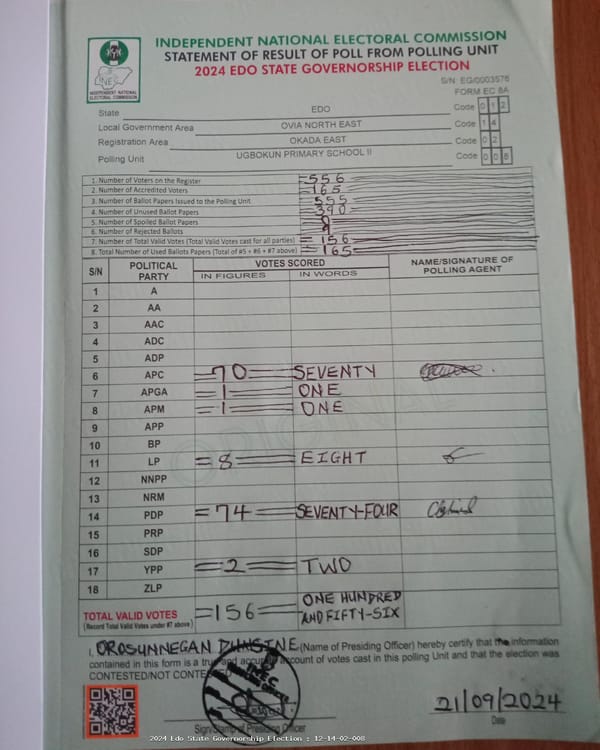 INDEPENDENT NATIONAL ELECTORAL COMMISSION
STATEMENT OF RESULT OF POLL FROM POLLING UNIT
2024 EDO STATE GOVERNORSHIP ELECTION
INDEPENDENT NATIONAL
ELECTORAL COMMISSION
S/N EG/0003576
FORM EC 8A
State EDO Code 0 1 2
Local Government Area OVIA NORTH EAST Code 1 4
Registration Area OKADA EAST Code 0 2
Polling Unit UGBOKUN PRIMARY SCHOOL II Code 0 0 8
1. Number of Voters on the Register 556
2. Number of Accredited Voters 165
3. Number of Ballot Papers Issued to the Polling Unit 555
4. Number of Unused Ballot Papers 390
5. Number of Spoiled Ballot Papers
6. Number of Rejected Ballots
7. Number of Total Valid Votes (Total Valid Votes cast for all parties) = 156
8. Total Number of Used Ballots Papers (Total of #5 + #6 + #7 above) = 165
S/N POLITICAL PARTY VOTES SCORED NAME/SIGNATURE OF POLLING AGENT
IN FIGURES IN WORDS
1 A
2 AA
3 AAC
4 ADC
5 ADP
6 APC =70= SEVENTY
7 APGA =1= ONE
8 APM =1= ONE
9 APP
10 BP
11 LP =8= EIGHT
12 NNPP
13 NRM
14 PDP =74= SEVENTY-FOUR
15 PRP
16 SDP
17 YPP =2= TWO
18 ZLP
TOTAL VALID VOTES =156= ONE HUNDRED AND FIFTY-SIX
(Record Total Valid Votes under #7 above)
I, OROSUNNEGAN (Name of Presiding Officer) hereby certify that the information
contained in this form is a true and accurate account of votes cast in this polling Unit and that the election was
CONTESTED/NOT CONTESTED
21/09/2024
Sign/Stamp of Presiding Officer Date
2024 Edo State Governorship Election : 12-14-02-008